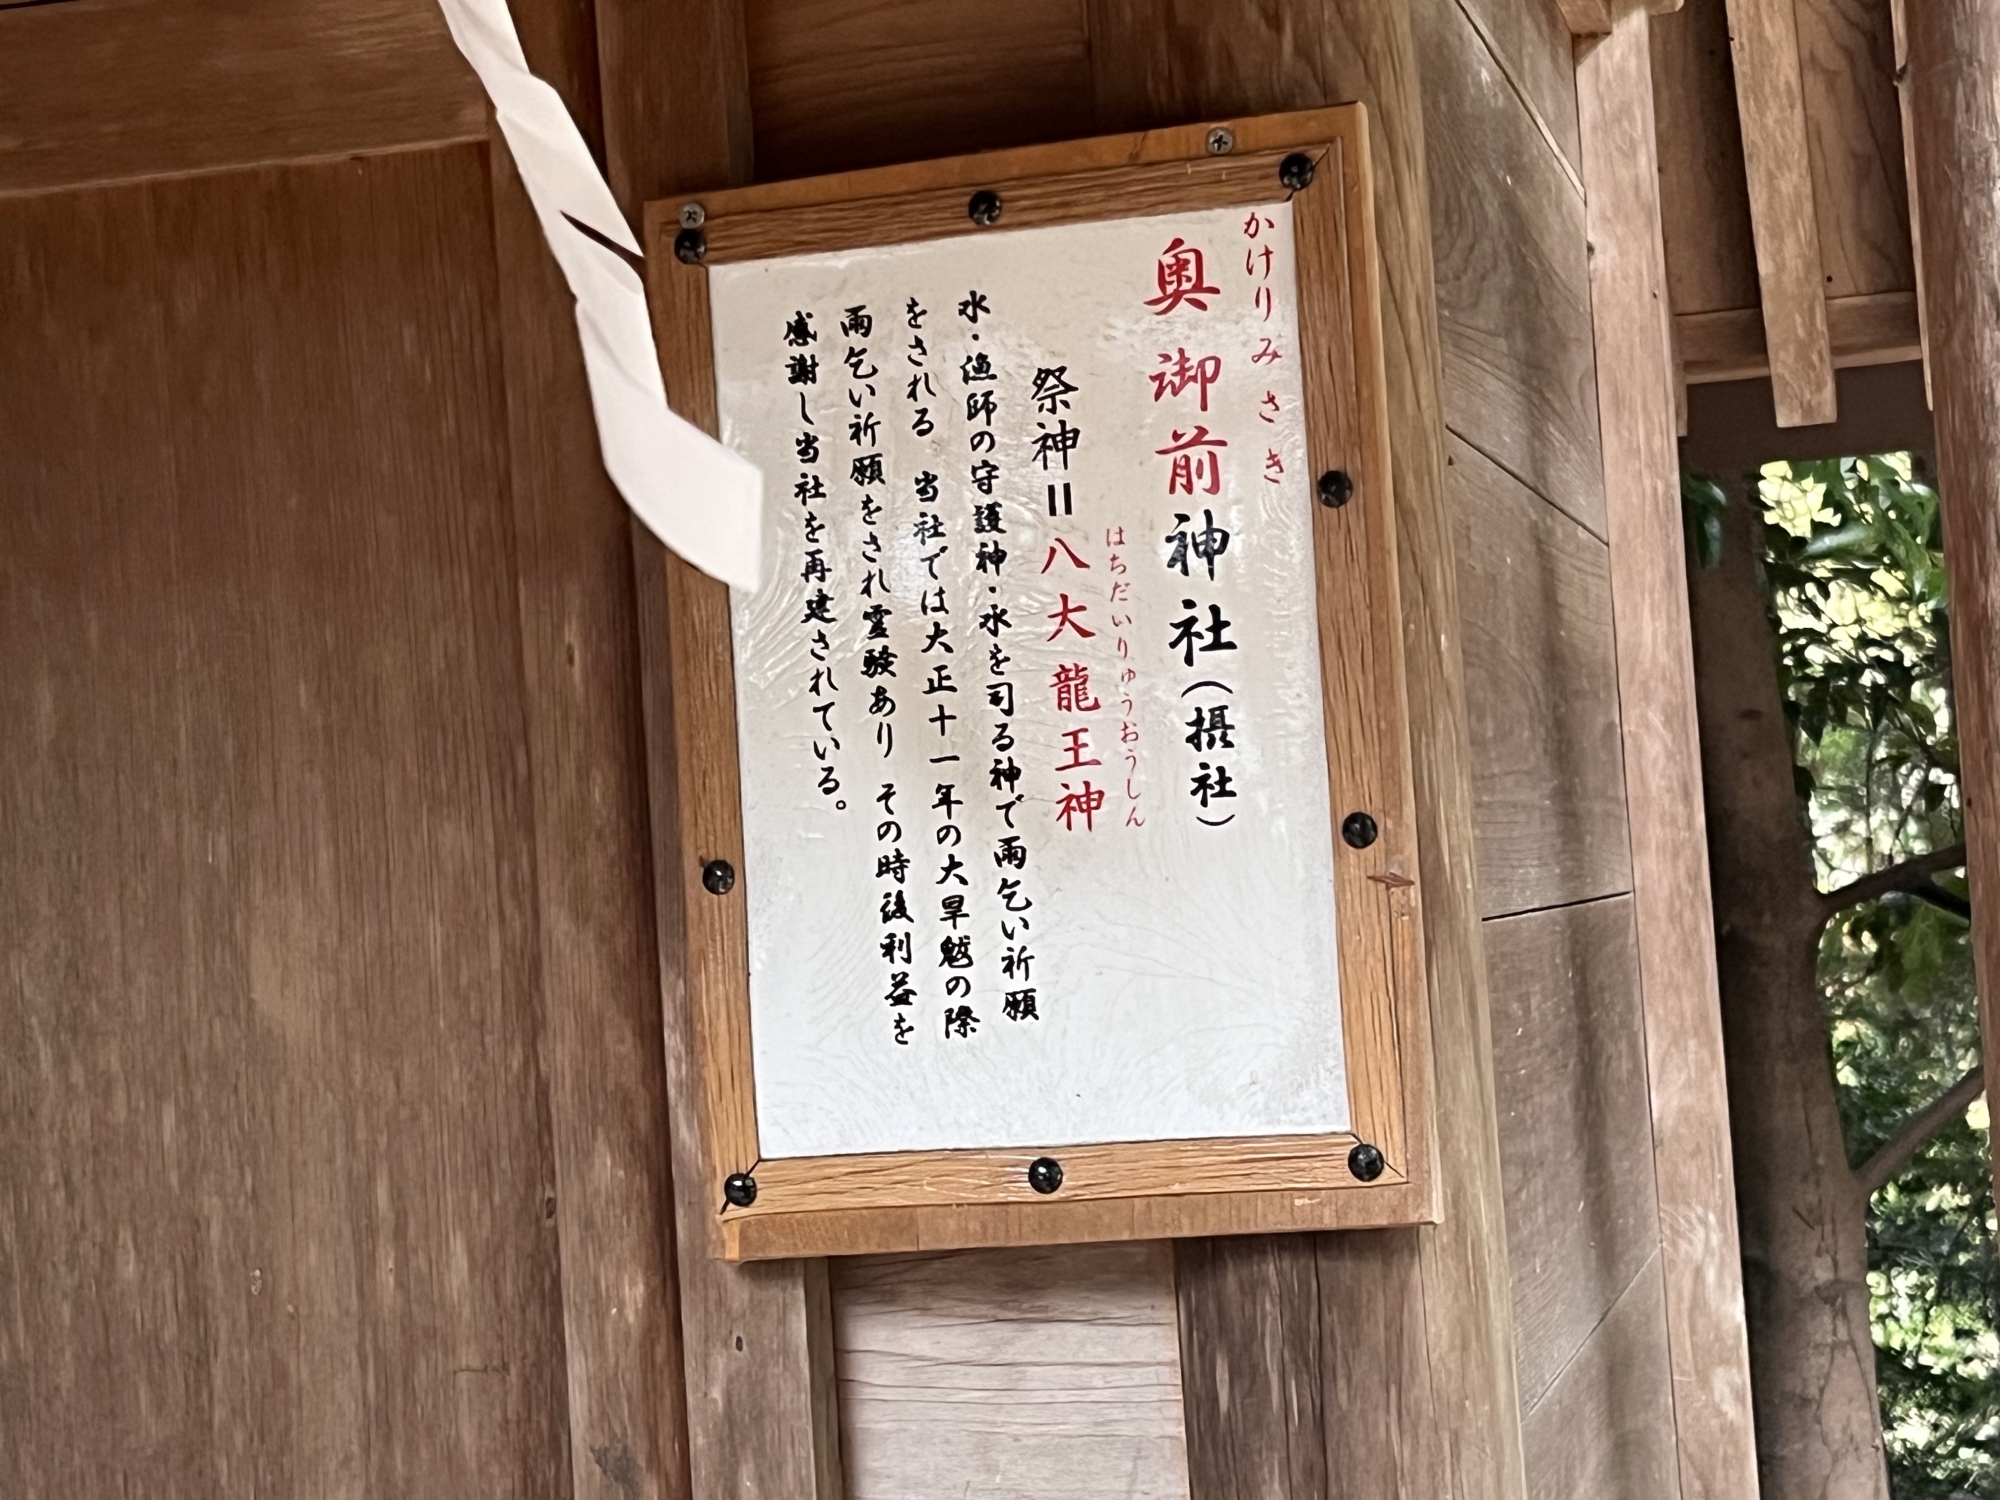 かけりみさき
奥御前神社(摂社)
はちだいりゅうおうしん
祭神=八大龍王神
水・漁師の守護神・水を司る神で雨乞い祈願
をされる 当社では大正十一年の大旱魃の際
雨乞い祈願をされ霊験あり その時後利益を
感謝し当社を再建されている。